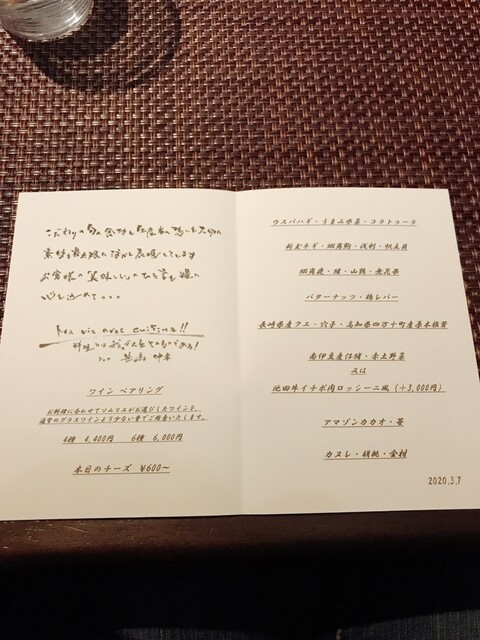 こだわりの旬の食材と生産者の想いを大切に
素材を最大限に活かし表現しています
お客様の「美味しい」のひと言を糧に
心を込めて...
ma vie avec cuisine!!
料理とは我が人生そのものである!
ワイン ペアリング
お料理に合わせてソムリエがお選びしたワインを、
通常のグラスワインより少ない量でご用意いたします。
4種 4,400円 6種 6,000円
本日のチーズ ¥600〜
ウスバハギ・うまみ水菜・コラトゥーラ
新玉ネギ・細魚・浅利・帆立貝
・猪・山鶉・無花果
バターナッツ・鴨レバー
長崎県産クエ・穴子・高知県四万十町産原木椎茸
南伊豆産仔猪・赤土野菜
又は
池田牛イチボ肉ロッシーニ風(+3,000円)
アマゾンカカオ・苺
カヌレ・胡桃・金柑
2020.3.7